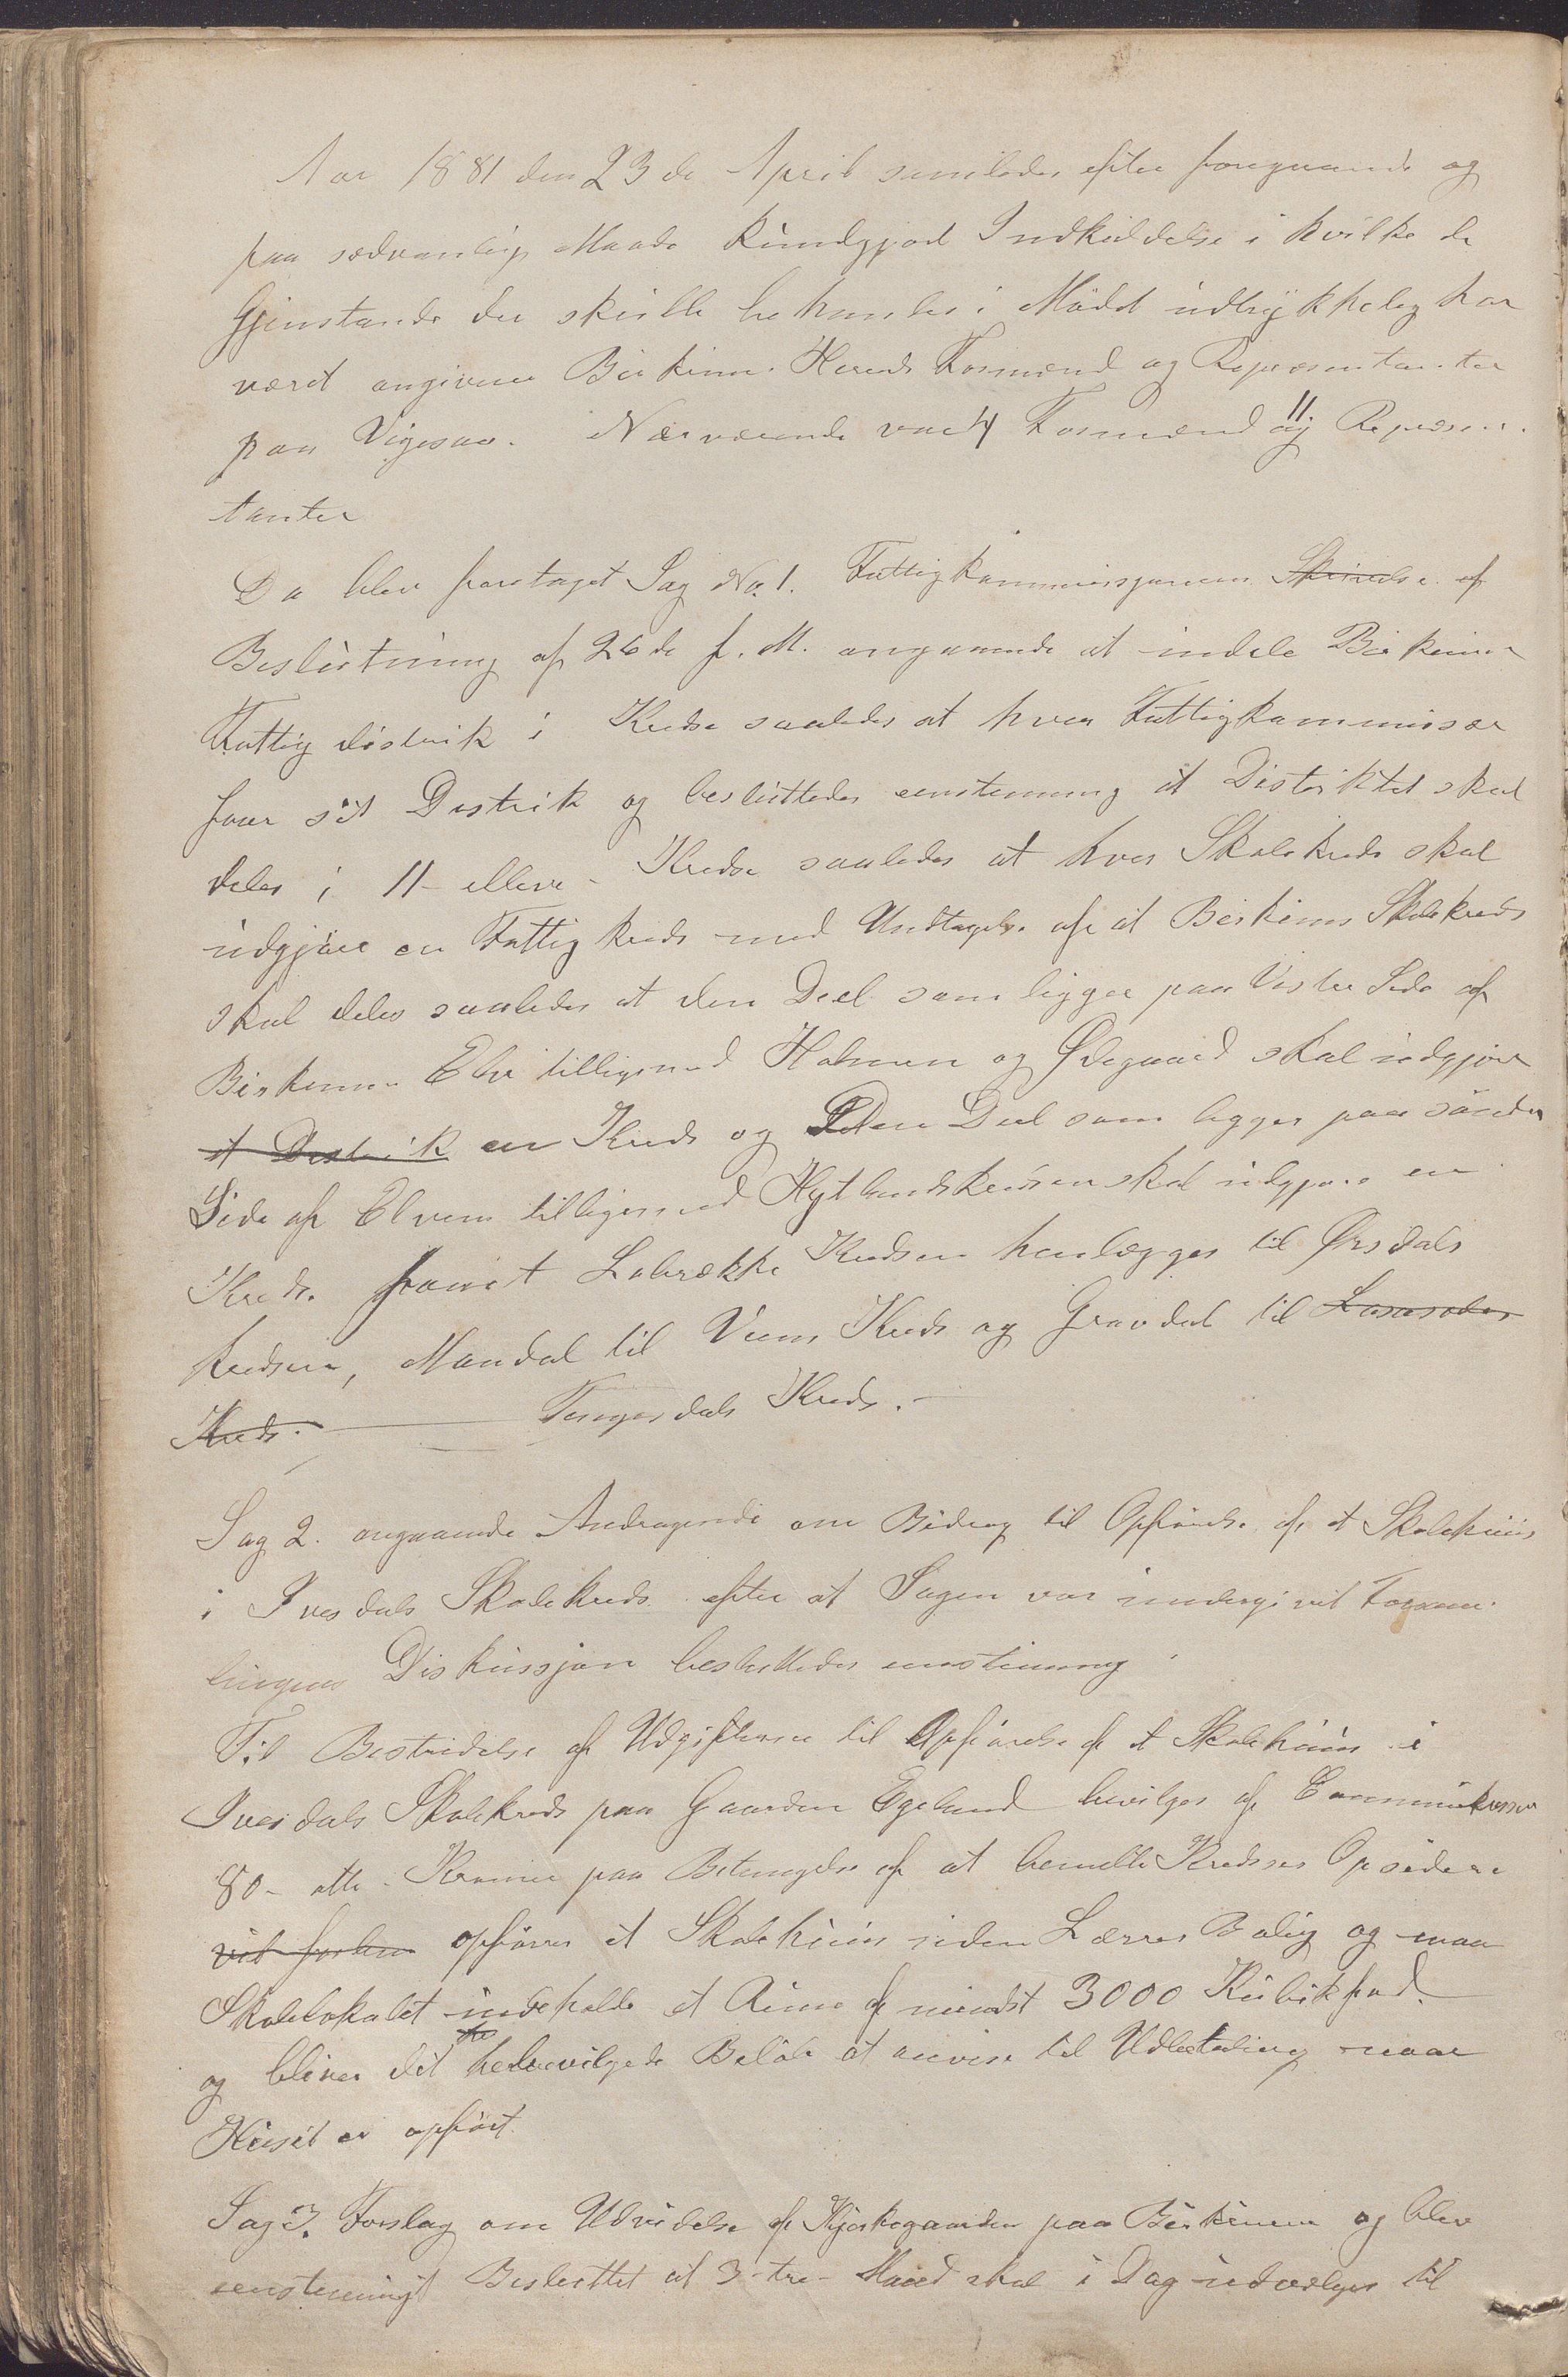 Aar 1881 den 23de April samledes efter foregaaende og
paa sædvanlig Maade kundgjord Indkaldelse i hvilke de
Gjenstande der skulle behandles i Mødet udtrykkelig har
været angivne Birkrem Hereds Formænd og Repræsentanter
paa Vigesaa. Nærværende var 4 Formænd og 11 Repræsen-
tanter
Da blev foretaget Sag No. 1. Fattigkommissjonens Skrivelse af
Beslutning af 26de f. M. angaaende at indele Birkrem
Fattig distrik i Kredse saaledes at hver Fattigkommissær
faar sit Distrik og besluttedes eenstemmig at Distriktet skal
deles i 11 - elleve - Kredse saaledes at hver Skolekreds skal
udgjøre en Fattig kreds med Undtagelse af at Birkrems Skolekreds
skal deles saaledes at den Deel som ligger paa Vestre Side af
Birkrems Elv tilligemed Holmen og Ødegaard skal udgjøre
et Distrik en Kreds og Den Deel som ligger paa søndre
Side af Elven tilligemed Hytlandskredsen skal udgjøre en
Kreds. samt Labrække Kredsen henlægges til Ørsdals
kredsen, Mandal til Vums Kreds og Gravdal til
Kreds. Tengesdals Kreds.
Sag 2. angaaende Andragende om Bidrag til Opførelse af et Skolehuus
i Ivesdals Skolekreds efter at Sagen var undergivet Forsam-
lingens Diskussjon besluttedes eenstemmig:
Til Bestridelse af Udgifterne til Opførelse af et Skolehuus i
Ivesdals Skolekreds paa Gaarden Egeland bevilges af Communekassen
80 - otti - Kroner paa Betingelse af at bemeldte Kredses Opsidere
vil opfører et Skolehuus uden Lærer Bolig og maa
Skolelokalet indeholde et Rum af mindst 3000 Kubikfod
og bliver det bevilgede Beløb at anvise til Udbetaling naar
Huset er opført.
Sag 3. Forslag om Udvidelse af Kjirkegaarden paa Birkrem og blev
eenstemmigt Besluttet at 3 - tre - Mænd skal i Dag udvælges til